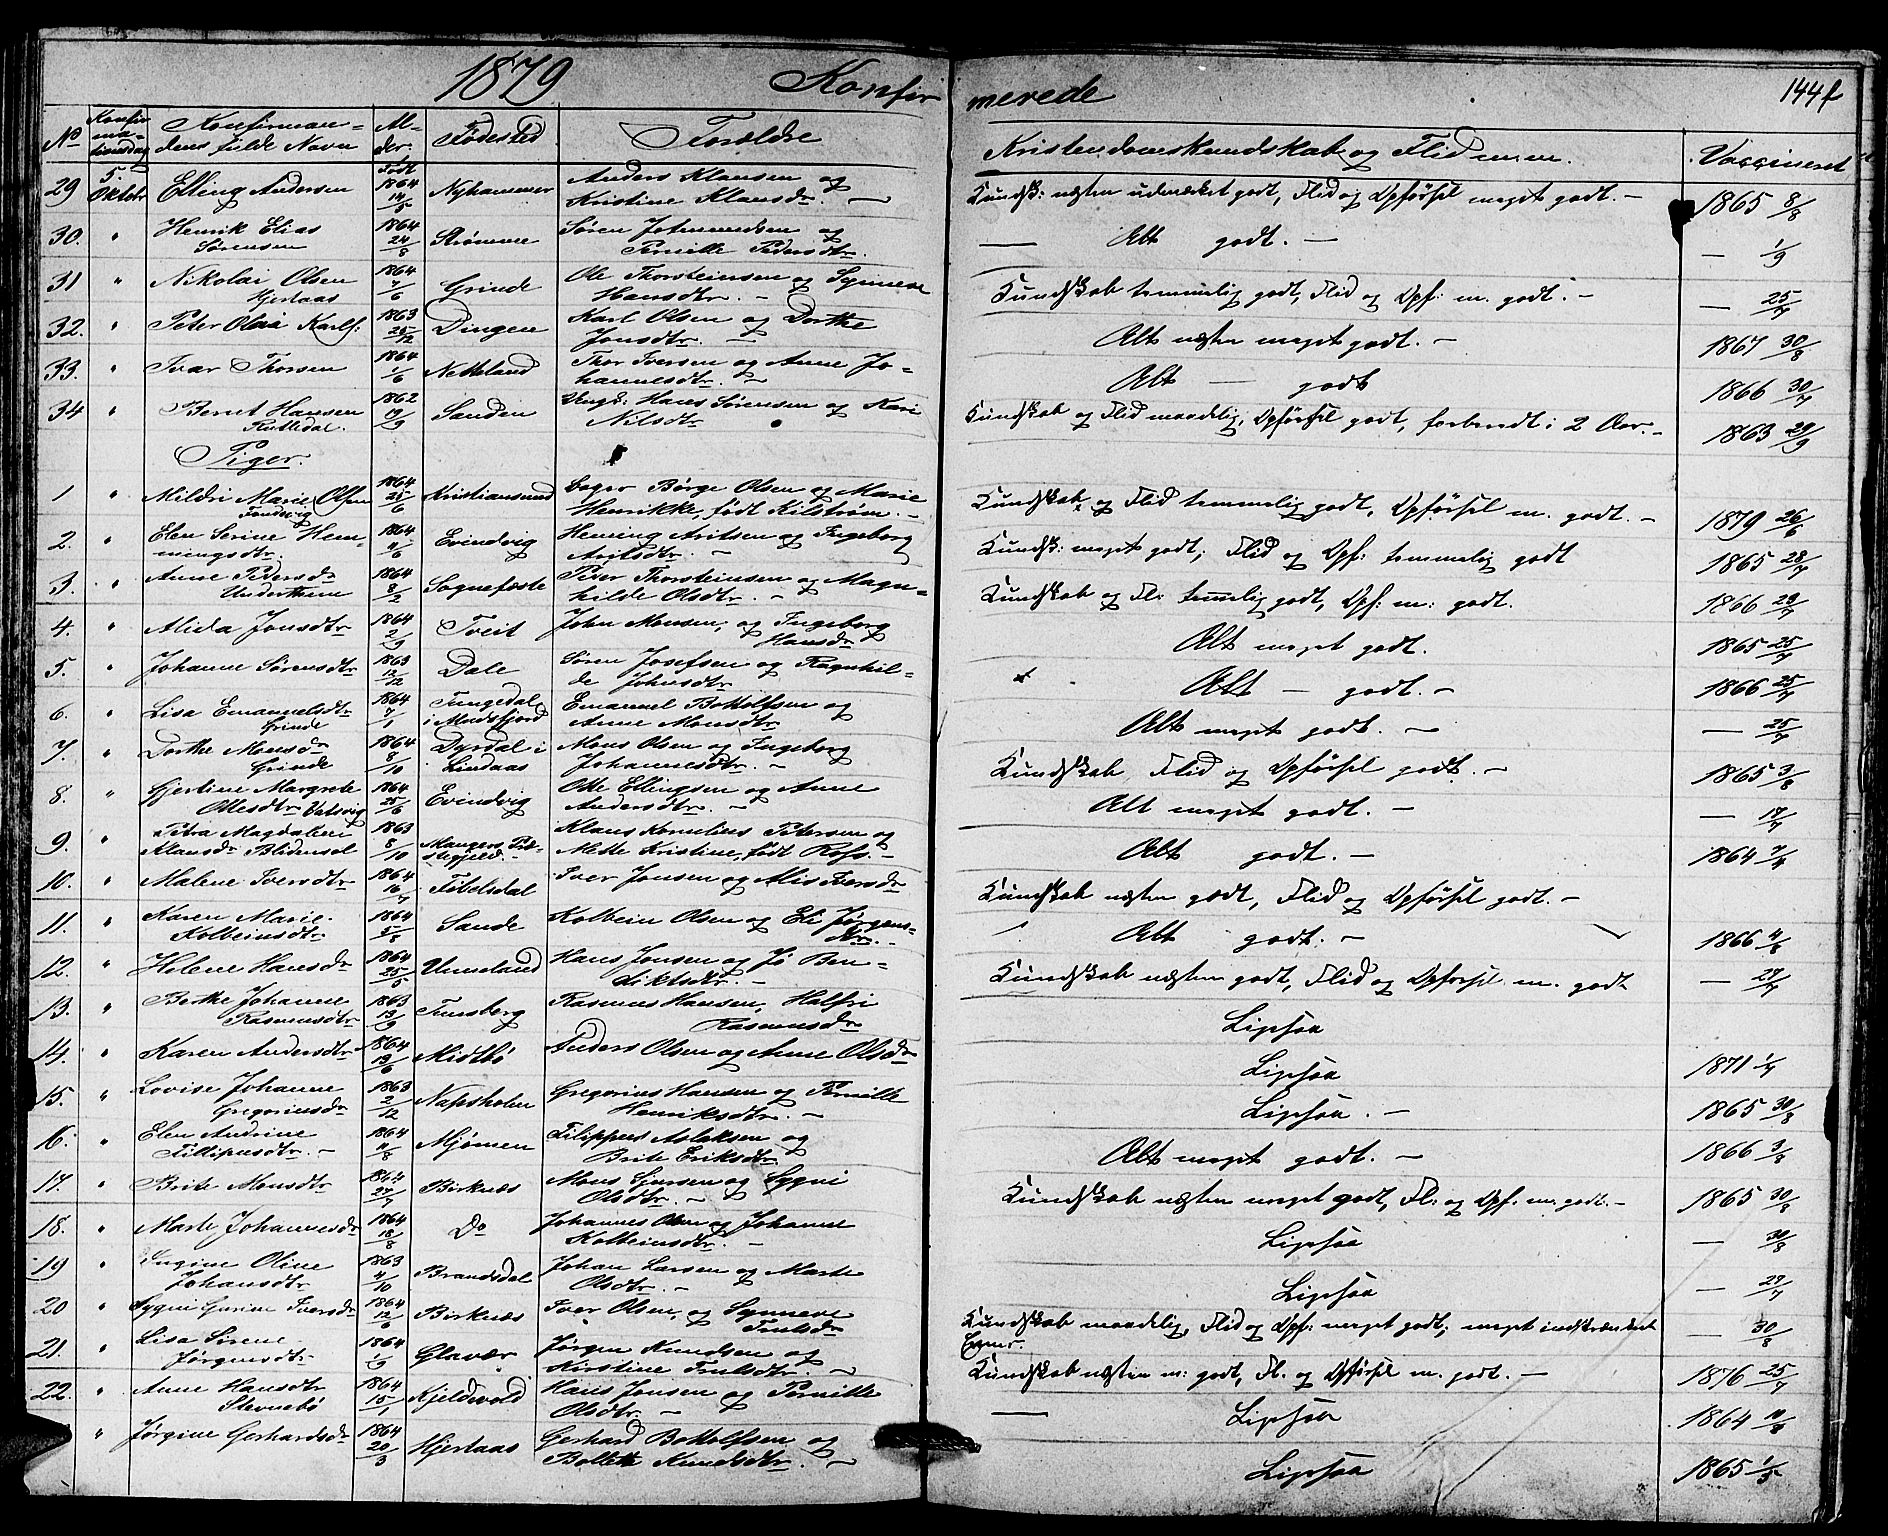 1879 Konfirmerede 144f
No Konfirmationsdag Konfirmandens fulde Navn Alder Fødested Forældre Kristendomskundskab og Flid m.m. Vaccineret
29 5. Oktobr Elling Andersen Født 1864 14/5 Nyhammer Anders Klausen og Kristine Klausdr. Kundsk: næsten udmærket godt, Flid og Opførsel meget godt. 1865 8/8
30. " Henrik Elias Sørensen 1864 24/8 Strømme Søren Johannesen og Pernille Pedersdtr. Alt godt. — 1/9
31 " Nikolai Olsen Hjertaas 1864 7/6 Grinde Ole Thorsteinsen og Synneve Hansdtr. Kundskab temmelig godt, Flid og Opf: m. godt. — 25/7
32. " Peter Olai Karls: 1863 25/12 Dingen Karl Olsen og Dorthe Jonsdtr. Alt næsten meget godt. 1867 30/8
33. " Ivar Thorsen 1864 1/6 Netteland Thor Iversen og Anne Johannesdtr. Alt — godt 1866 30/7
34 " Bernt Hansen Rutledal. 1862 19/9 Sanden Ungk: Hans Sørensen og Kari Nilsdtr Kundskab og Flid maadelig, Opførsel godt, forberedt i 2 Aar. 1863 29/9
Piger.
1 " Mildri Marie Olsen 1864 25/6 Kristiansund Bager Børge Olsen og Marie Henrikke, født Kilstrøm. Kundskab og Flid temmelig godt, Opførsel m. godt. 1879 26/6
2. " Elen Serine Hemmingsdtr. 1864 11/6 Evindvig Heming Aritsen og Ingeborg Aritsdtr. Kundsk: meget godt; Flid og Opf: temmelig godt 1865 28/7
3. " Anne Pedersdr Underthun 1864 8/2 Sognefæste Peder Thorsteinsen og Magnhilde Olsdtr. Kundskab og Fl: temmelig godt, Opf: m: godt. 1866 29/7
4. " Alida Jonsdtr 1864 2/9 Tveit John Monsen, og Ingeborg Hansdr Alt meget godt. 1865 25/7
5. " Johanne Sørensdtr 1863 12/12 Dale Søren Josefsen og Ragnhilde Johnsdtr Alt — godt. 1866 25/7
6. " Lisa Emanuelsdtr Grinde 1864 7/1 Tungedal i Masfjord Emanuel Bottolfsen og Anne Monsdtr Alt meget godt. — 25/7
7. " Dorthe Monsdr Grinde 1864 8/10 Dyrdal i Lindaas Mons Olsen og Ingeborg Johannesdtr. Kundskab, Flid og Opførsel godt. 1865 3/8
8. " Gjertine Margrete Ottesdtr Vatsvig 1864 25/6 Evindvig Otte Ellingsen og Anne Andersdtr. Alt meget godt. — 17/7
9. " Petra Magdalene Klausdr Blidensol 1863 8/10 Mangers Præstegjeld. Klaus Kornelius Petersen og Mette Kristine, født Rofs. Alt godt. 1864 7/4
10. " Malene Iversdtr 1864 16/7 Fivelsdal Iver Jonsen og Alis Iversdr Kundskab næsten godt, Flid og Opførsel godt.
11. " Karen Marie Kolbeinsdtr 1864 5/8 Sande Kolbein Olsen og Eli Jørgensdtr. Alt godt. 1866 4/8
12. " Helene Hansdr 1864 25/5 Unneland Hans Jonsen og Jø Bendiktsdtr. Kundskab næsten godt, Flid og Opførsel m. godt — 27/7
13. " Berthe Johanne Rasmusdtr 1863 13/9 Tunsberg Rasmus Hansen, Halfri Rasmusdr Ligesaa
14. " Karen Andersdtr 1864 13/6 Midtbø Anders Olsen og Anne Olsdr Ligesaa 1871 1/7
15. " Lovise Johanne Gregoriusdr 1863 2/12 Napsholm Gregorius Hansen og Pernille Henriksdtr. Ligesaa. 1865 30/8
16. " Elen Andrine Fillipusdtr. 1864 11/8 Mjømen Filippus Aslaksen og Brite Eriksdtr Alt meget godt. 1866 3/8
17. " Brite Monsdtr 1864 27/7 Birknæs Mons Sjursen og Sygni Olsdtr. Kundskab næsten meget godt, Fl: og Opf: m: godt. 1865 30/8
18. " Marte Johannesdr 1864 18/8 Do Johannes Olsen og Johanne Kolbeinsdtr. Ligesaa — 30/8
19 " Ingine Oline Johansdtr 1863 4/10 Brandsdal Johan Larsen og Marte Olsdtr. Ligesaa — 27/7
20 " Sygni Gurine Iversdr 1864 12/6 Birknæs Iver Olsen, og Synneve Trulsdr Kundskab maadelig, Flid og Opf: meget godt; meget indskrænkede Evner. — 30/8
21. " Lisa Sirene Jørgensdtr 1864 1/9 Glavær Jørgen Knudsen og Kirstine Trulsdtr. Kundskab næsten m: godt, Fl. og Opførsel m. godt. 1876 25/7
22. " Anne Hansdtr Stevnebø 1864 15/1 Kjeldevold Hans Jonsen og Pernille Olsdtr. Ligesaa 1864 10/8
" Jørgine Gerhardsdr 1864 20/3 Hjertaas Gerhard Bottolfsen og Bolette Knudsdtr. Ligesaa 1865 1/5